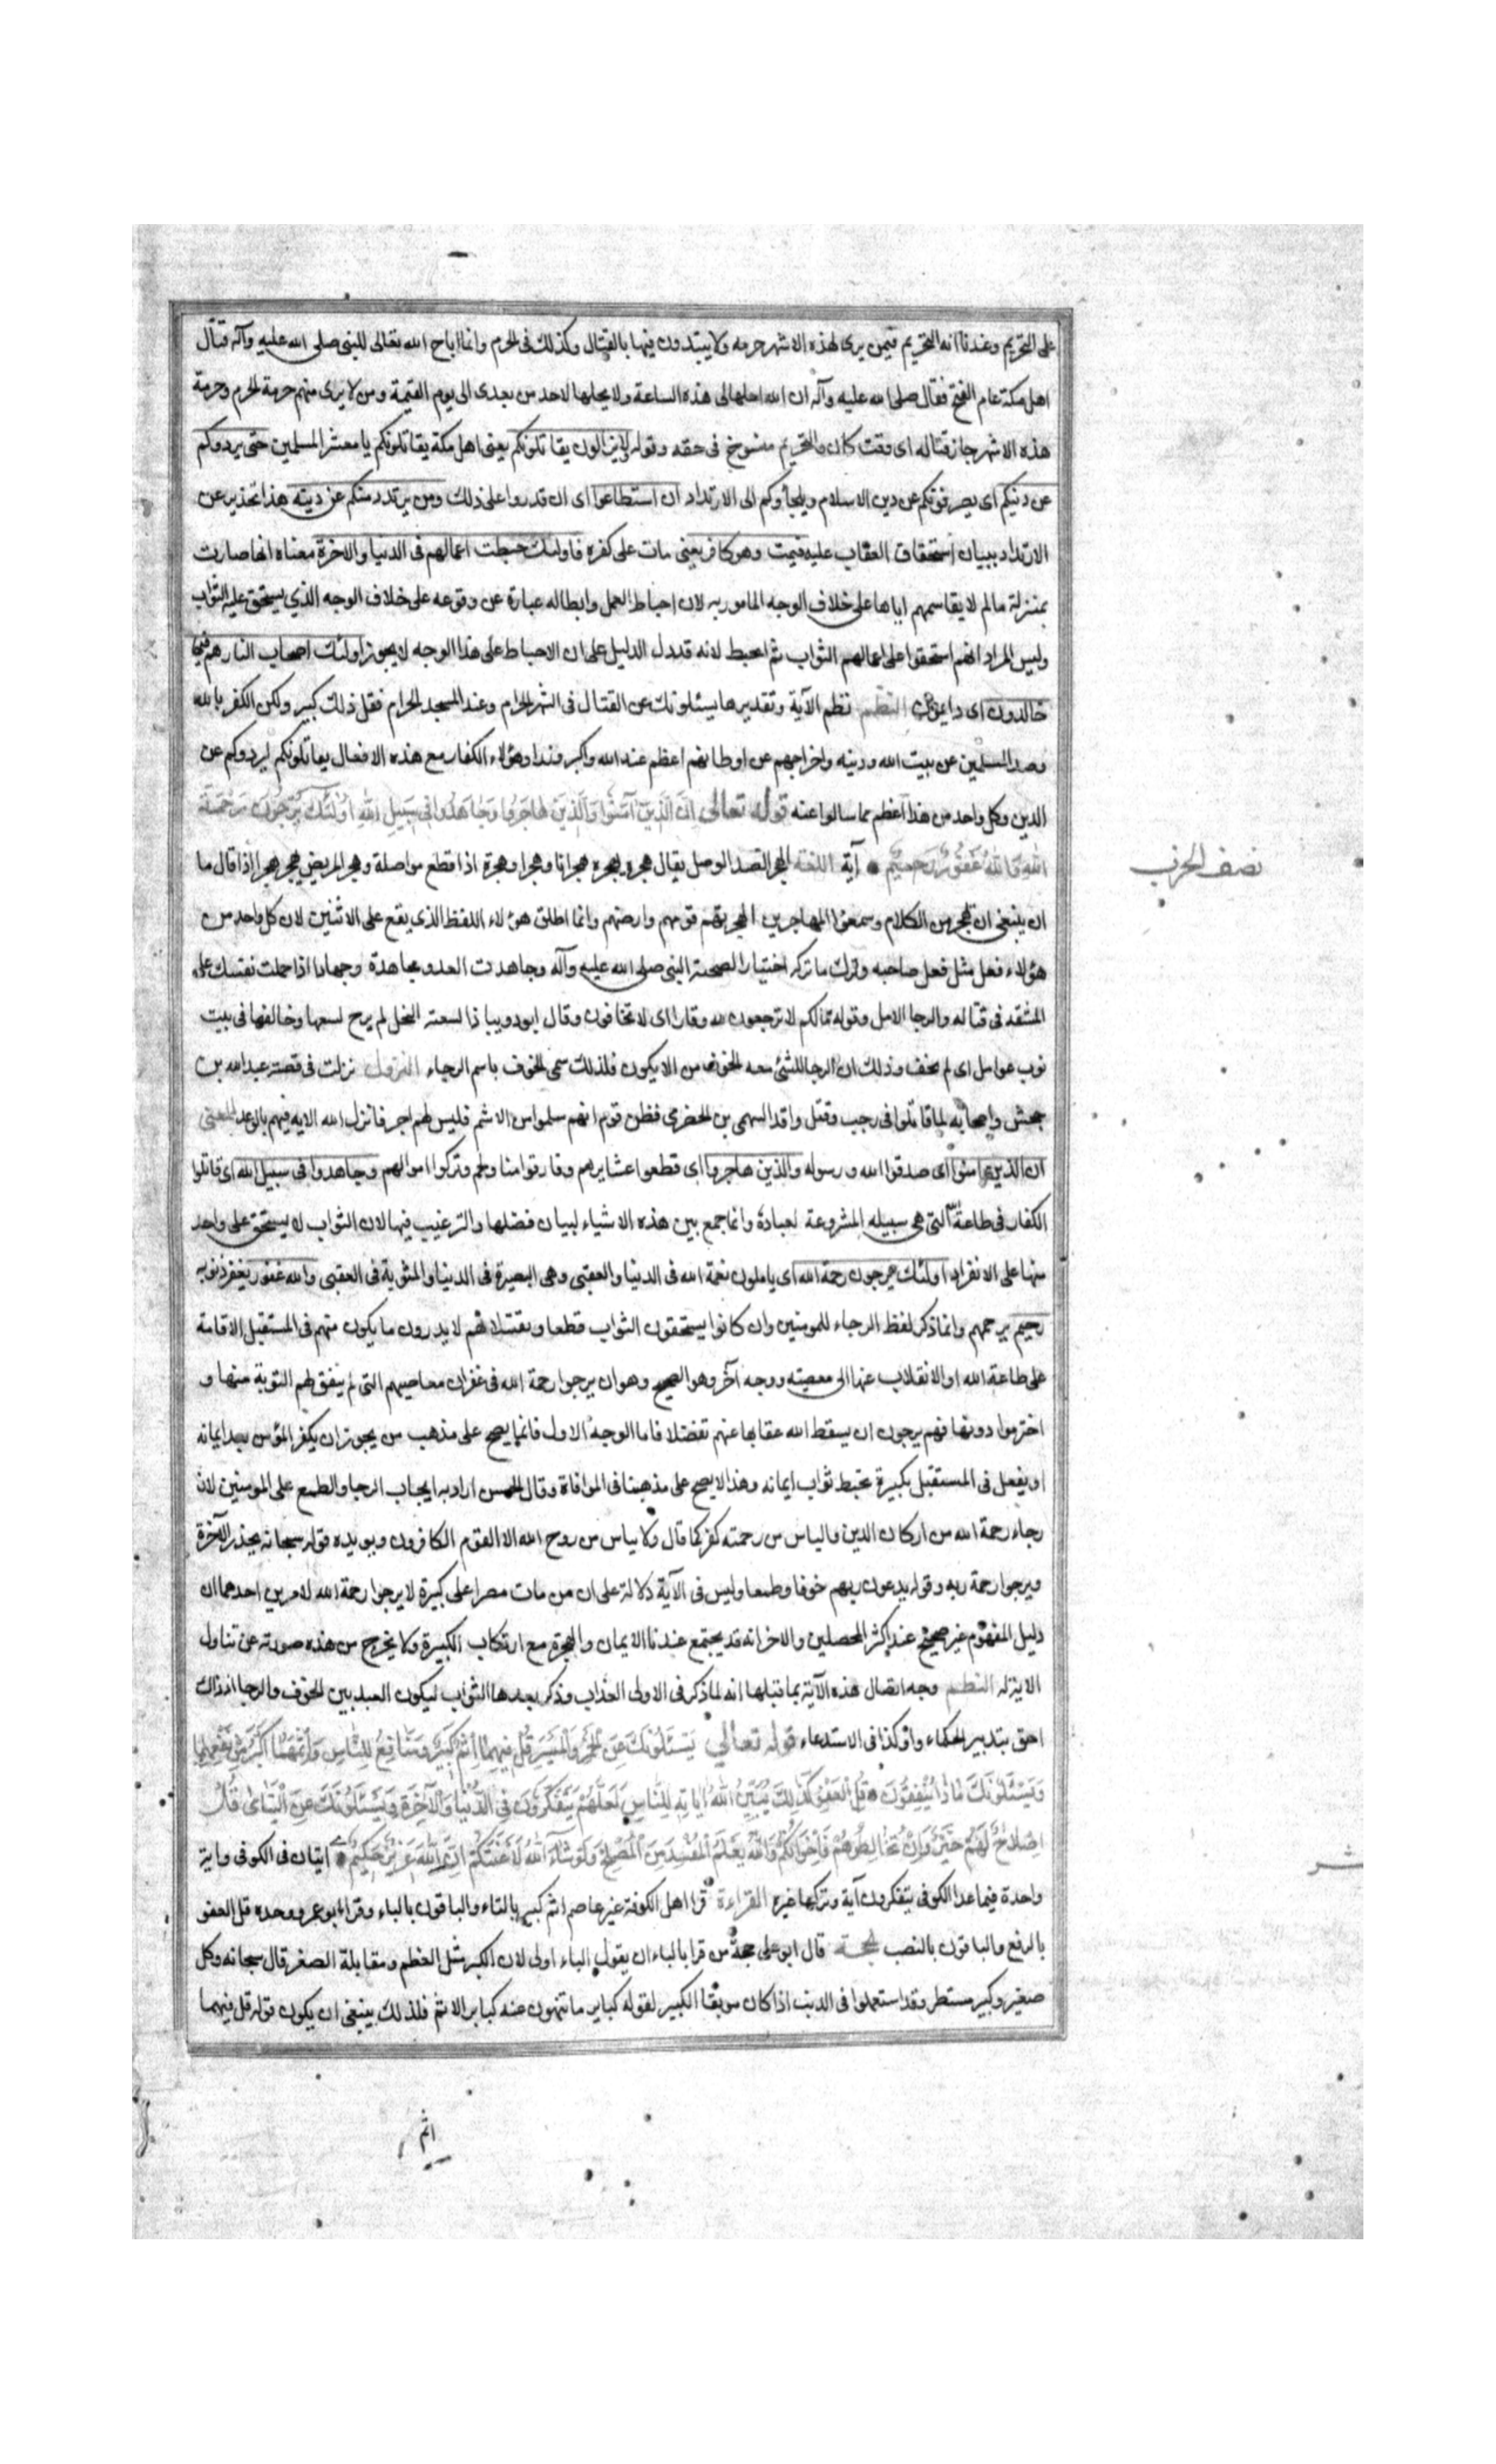 على التحريم وعندنا انه التحريم فيمن يرى لهذه الاشهر حرمه ولا يبتدون فيها بالقتال وكذلك في الحرم وانما اباح الله تعالى للنبي صلى الله عليه وآله قتال
اهل مكة عام الفتح فقال صلى الله عليه وآله ان الله احلها لى هذه الساعة ولا يحلها لاحد من بعدى الى يوم القيمة ومن لا يرى منهم حرمة الحرم وحرمة
هذه الاشهر جاز قتاله اى وقت كان والتحريم منسوخ فى حقه وقوله ولا يزالون يقاتلونكم يعنى اهل مكة يقاتلونكم يا معشر المسلمين حتى يردوكم
عن دينكم اى يصرفوكم عن دين الاسلام ويلجأوكم الى الارتداد ان استطاعوا اى ان قدروا على ذلك ومن يرتدد منكم عن دينه هذا تحذير عن
الارتداد ببيان استحقاق العقاب عليه فيمت وهو كافر يعنى مات على كفره فاولئك حبطت اعمالهم فى الدنيا والاخرة معناه انها صارت
بمنزلة مالم لايقاسمهم اياها على خلاف الوجه المامور به لان احباط العمل وابطاله عبارة عن وقوعه على خلاف الوجه الذي يستحق عليه الثواب
وليس المراد انهم استحقوا على اعمالهم الثواب ثم احبط لانه قد دل الدليل على ان الاحباط على هذا الوجه لا يجوز اولئك اصحاب النار هم فيها
خالدون اى دايمون النظم نظم الآية وتقديرها يسئلونك عن القتال فى الشهر الحرام وعند المسجد الحرام فقل ذلك كبير ولكن الكفر بالله
وصد المسلمين عن بيت الله ودينه واخراجهم عن اوطانهم اعظم عند الله واكبر وزرا وهؤلاء الكفار مع هذه الافعال يقاتلونكم ليردوكم عن
الدين وكل واحد من هذا اعظم مما سالوا عنه قوله تعالى اِنَّ الَّذِينَ آمَنُوا وَالَّذِينَ هَاجَرُوا وَجَاهَدُوا فِي سَبِيلِ اللهِ اُولٰئِكَ يَرْجُونَ رَحْمَتَ
اللهِ وَاللهُ غَفُورٌ رَحِيمٌ آية اللغة الهجر الضد الوصل يقال هجره يهجره هجرانا وهجرا وهجرة اذا قطع مواصلة وهجر المريض يهجر هجرا اذا قال ما
ان ينبغى ان يهجر من الكلام وسمعوا المهاجرين لهجرتهم قومهم وارضهم وانما اطلق هؤلاء اللفظ الذى يقع على الاثنين لان كل واحد من
هؤلاء فعل مثل فعل صاحبه وترك ما تركه اختيارا لصحبة النبى صلى الله عليه وآله وجاهدت العدو مجاهدة وجهادا اذا حملت نفسك على
المشقه فى قتاله والرجا الامل وقوله مالكم لا ترجون لله وقارا اى لا تخافون وقال ابو دويب اذا لسعته النحل لم يرج لسعها وخالفها فى بيت
نوب عوامل اى لم يخف وذلك ان الرجا للشئ معه الخوف من الا يكون فلذلك سمى الخوف باسم الرجاء النزول نزلت فى قصة عبدالله بن
جحش واصحابه لما قاتلوا فى رجب وقتل واقد السهمى بن الحضرمى فظن قوم انهم سلموا من الاثم فليس لهم اجر فانزل الله الايه فيهم بالوعد المعنى
ان الذين امنوا اى صدقوا الله ورسوله والذين هاجروا اى قطعوا عشايرهم وفارقوا منازلهم وتركوا اموالهم وجاهدوا فى سبيل الله اى قاتلوا
الكفار فى طاعة الله التى هى سبيله المشروعة لعباده وانما جمع بين هذه الاشياء لبيان فضلها والترغيب فيها لان الثواب لا يستحق على واحد
منها على الانفراد اولئك يرجون رحمة الله اى ياملون نعمة الله فى الدنيا والعقبى وهى البصيرة فى الدنيا والمثوبة فى العقبى والله غفور يغفر ذنوبه
رحيم يرحمهم وانما ذكر لفظ الرجاء للمومنين وان كانوا يستحقون الثواب قطعا لانهم لا يدرون ما يكون منهم فى المستقبل الاقامة
على طاعة الله او الانقلاب عنها الى معصيته ووجه آخر وهو الصحيح وهو ان يرجوا رحمة الله فى غفران معاصيهم التى لم يتفق لهم التوبة منها و
اخترموا دونها فهم يرجون ان يسقط الله عقابها عنهم تفضلا فاما الوجه الاول فانما يصح على مذهب من يجوز ان يكفر المؤمن بعد ايمانه
او يفعل فى المستقبل كبيرة تحبط ثواب ايمانه وهذا لا يصح على مذهبنا فى الموافاة وقال الحسن اراد به ايجاب الرجا والطمع على المومنين لان
رجاء رحمة الله من اركان الدين والياس من رحمته كفر كما قال ولا يياس من روح الله الا القوم الكافرون ويويده قوله سبحانه يحذر الآخرة
ويرجوا رحمة ربه وقوله يدعون ربهم خوفا وطمعا وليس فى الآية دلالة على ان من مات مصرا على كبيرة لا يرجوا رحمة الله لامرين احدهما ان
دليل المفهوم غير صحيح عند اكثر المحصلين والاخر انه قد يجتمع عندنا الايمان والهجرة مع ارتكاب الكبيرة ولا يخرج من هذه صورته عن تناول
الاية له النظم وجه اتصال هذه الآية بما قبلها انه لما ذكر فى الاولى العذاب وذكر بعدها الثواب ليكون العبد بين الخوف والرجا اذ ذاك
احق بتدبير الحكماء واوكد فى الاستدعاء قوله تعالي يَسْئَلُونَكَ عَنِ الْخَمْرِ وَالْمَيْسِرِ قُلْ فِيهِمَا اِثْمٌ كَبِيرٌ وَمَنَافِعُ لِلنَّاسِ وَاِثْمُهُمَا اَكْبَرُ مِنْ نَفْعِهِمَا
وَيَسْئَلُونَكَ مَاذَا يُنْفِقُونَ قُلِ الْعَفْوَ كَذٰلِكَ يُبَيِّنُ اللهُ اٰيَاتِهِ لِلنَّاسِ لَعَلَّهُمْ يَتَفَكَّرُونَ فِي الدُّنْيَا وَالْآخِرَةِ وَيَسْئَلُونَكَ عَنِ الْيَتَامٰى قُلْ
اِصْلَاحٌ لَهُمْ خَيْرٌ وَاِنْ تُخَالِطُوهُمْ فَاِخْوَانُكُمْ وَاللهُ يَعْلَمُ الْمُفْسِدَ مِنَ الْمُصْلِحِ وَلَوْ شَاءَ اللهُ لَاَعْنَتَكُمْ اِنَّ اللهَ عَزِيزٌ حَكِيمٌ ايتان فى الكوفى واية
واحدة فيما عدا الكوفى يتفكرون آية وتركها غيره القراءة قرا اهل الكوفة غير عاصم اثم كبير بالثاء والباقون بالباء وقرا ابو عمرو وحده قل العفو
بالرفع والباقون بالنصب الحجة قال ابو على حجة من قرا بالباء ان يقول الباء اولى لان الكبر مثل العظم ومقابلة الصغر قال سبحانه وكل
صغير وكبير مستطر وقد استعملوا فى الذنب اذا كان موبقا الكبير لقوله كباير ما تنهون عنه كباير الاثم فلذلك ينبغى ان يكون قوله قل فيهما
نصف الحزب
اثم